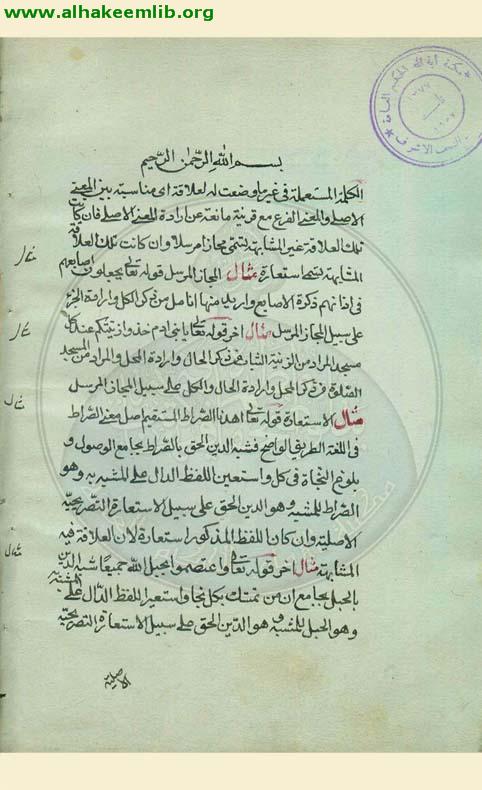 www.alhakeemlib.org
مكتبة آية الله الحكيم العامة
النجف الاشرف
بسم الله الرحمن الرحيم
الكلمة المستعملة في غير ما وضعت له لعلاقة اى مناسبة بين المعنى
الاصلى والمعنى الفرع مع قرينة مانعة عن ارادة المعنى الاصلى فان كانت
تلك العلاقة غير المشابهة يسمى مجازا مرسلا وان كانت تلك العلاقة
المشابهة يسمى استعارة مثال المجاز المرسل قوله تعالى يجعلون اصابعهم
في اذانهم ذكرة الاصابع واريد منها انامل من ذكر الكل وارادة الجزء
على سبيل المجاز المرسل مثال اخر قوله تعالى يا بنى ادم خذوا زينتكم عند كل
مسجد المراد من الزينة الثياب فذكر الحال وارادة المحل والمراد من المسجد
الصلوة فذكر المحل وارادة الحال والكل على سبيل المجاز المرسل
مثال الاستعارة قوله تعالى اهدنا الصراط المستقيم اصل معنى الصراط
في اللغة الطريق الواضح فشبه الدين الحق بالصراط بجامع الوصول و
بلوغ النجاة في كل واستعير اللفظ الدال على المشبه به وهو
الصراط للمشبه وهو الدين الحق على سبيل الاستعارة التصريحية
الاصلية وان كان اللفظ المذكور استعارة لان العلاقة فيه
المشابهة مثال اخر قوله تعالى واعتصموا بحبل الله جميعا شبه الدين
بالحبل بجامع ان من تمسك بكل نجا واستعير اللفظ الدال على المشبه به
وهو الحبل للمشبه وهو الدين الحق على سبيل الاستعارة التصريحية
الاصلية
مثال
مثال
مثال
مثال